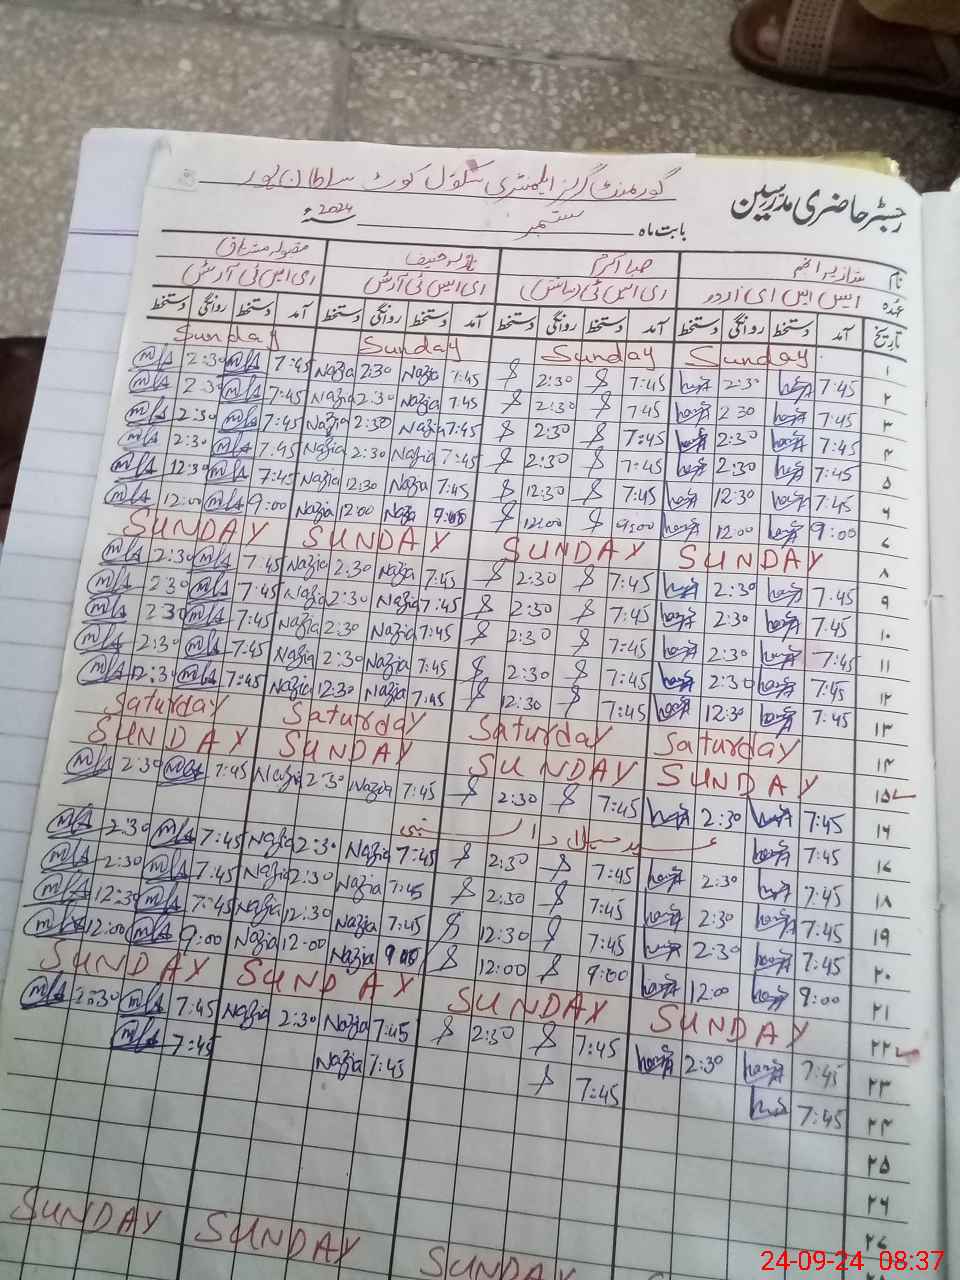 گورنمنٹ گرلز ایلیمنٹری سکول کوٹ سلطان پور
رجسٹر حاضری مدرسین
بابت ماہ ستمبر 2024ء
نام شازیہ انجم صبا اکرم نازیہ حنیف
عہدہ ایس ایس ای اردو ای ایس ٹی (سائنس) ای ایس ٹی آرٹس ای ایس ٹی آرٹس
تاریخ آمد دستخط روانگی دستخط آمد دستخط روانگی دستخط آمد دستخط روانگی دستخط آمد دستخط روانگی دستخط
۱ Sunday Sunday Sunday Sunday
۲ 7:45 2:30 7:45 2:30 7:45 Nazia 2:30 Nazia 7:45 2:30
۳ 7:45 2:30 7:45 2:30 7:45 Nazia 2:30 Nazia 7:45 2:30
۴ 7:45 2:30 7:45 2:30 7:45 Nazia 2:30 Nazia 7:45 2:30
۵ 7:45 2:30 7:45 2:30 7:45 Nazia 2:30 Nazia 7:45 2:30
۶ 7:45 12:30 7:45 12:30 7:45 Nazia 12:30 Nazia 7:45 12:30
۷ 9:00 12:00 9:00 12:00 Nazia 12:00 Nazia 9:00 12:00
۸ SUNDAY SUNDAY SUNDAY SUNDAY
۹ 7:45 2:30 7:45 2:30 7:45 Nazia 2:30 Nazia 7:45 2:30
۱۰ 7:45 2:30 7:45 2:30 7:45 Nazia 2:30 Nazia 7:45 2:30
۱۱ 7:45 2:30 7:45 2:30 7:45 Nazia 2:30 Nazia 7:45 2:30
۱۲ 7:45 2:30 7:45 2:30 7:45 Nazia 2:30 Nazia 7:45 2:30
۱۳ 7:45 12:30 7:45 12:30 7:45 Nazia 12:30 Nazia 7:45 12:30
۱۴ Saturday Saturday Saturday Saturday
۱۵ SUNDAY SUNDAY SUNDAY SUNDAY
۱۶ 7:45 2:30 7:45 2:30 7:45 Nazia 2:30 Nazia 7:45 2:30
۱۷ 7:45 عید میلاد النبی
۱۸ 7:45 2:30 7:45 2:30 7:45 Nazia 2:30 Nazia 7:45 2:30
۱۹ 7:45 2:30 7:45 2:30 7:45 Nazia 2:30 Nazia 7:45 2:30
۲۰ 7:45 2:30 7:45 12:30 7:45 Nazia 12:30 Nazia 7:45 12:30
۲۱ 9:00 12:00 9:00 12:00 9:00 Nazia 12:00 Nazia 9:00 12:00
۲۲ SUNDAY SUNDAY SUNDAY SUNDAY
۲۳ 7:45 2:30 7:45 2:30 7:45 Nazia 2:30 Nazia 7:45 2:30
۲۴ 7:45 7:45 7:45 Nazia 7:45
۲۵
۲۶
۲۷
SUNDAY SUNDAY SUNDAY
24-09-24 08:37